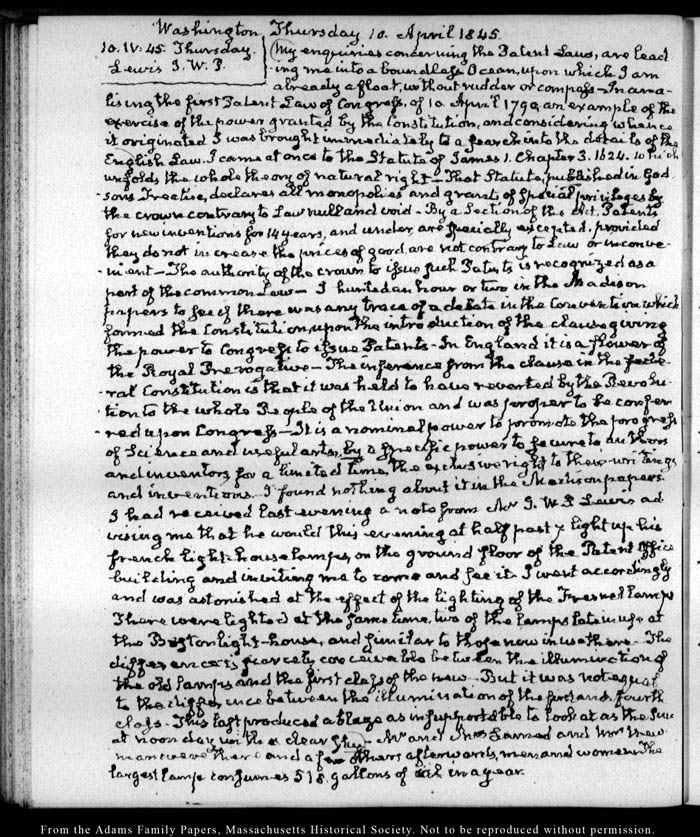 Washington, Thursday 10. April 1845.
10. IV: 45. Thursday.
Lewis I. W. P.
My enquiries concerning the Patent Laws, are lead
ing me into a boundless Ocean, upon which I am
already afloat, without rudder or compass - In ana-
lising the first Patent Law of Congress, of 10. April 1790, an example of the
exercise of the power granted by the Constitution, and considering whence
it originated I was brought immediately to a search into the details of the
English Law. I came at once to the Statute of James 1. Chapter 3. 1624. which
unfolds the whole theory of natural right - That Statute, published in God
sons Treatise, declares all monopolies and grants of special privileges by
the crown contrary to Law null and void - By a Section of the Act, Patents
for new inventions for 14 years, and under, are specially excepted, provided
they do not increase the prices of good are not contrary to Law or inconve-
nient - The authority of the crown to issue such Patents is recognized as a
part of the common Law - I hunted an hour or two in the Madison
papers to see if there was any trace of a debate in the Convention which
formed the Constitution, upon the introduction of the clause giving
the power to Congress to issue Patents - In England it is a flower of
the Royal Prerogative - The inference from the clause in the Fede-
ral Constitution is that it was held to have reverted by the Revolu-
tion to the whole People of the Union and was proper to be confer
red upon Congress - It is a nominal power to promote the progress
of Science and useful arts, by a specific power to secure to authors
and inventors for a limited time, the exclusive right to their writings
and inventions. I found nothing about it in the Madison papers.
I had received last evening a note from Mr I. W. P. Lewis ad
vising me that he would this evening at half past 7 light up his
french light-house lamps, on the ground floor of the Patent Office
building and inviting me to come and see it I went accordingly
and was astonished at the effect of the lighting of the Fresnel lamps
There were lighted at the same time, two of the lamps late in use at
the Boston light-house, and similar to those now in use there - The
difference is scarcely conceivable between the illumination of
the old lamps and the first class of the new - But it was not equal
to the difference between the illumination of the first and fourth
class - This last produced a blaze as insupportable to look at as the Sun
at noon day in the clear sky - Mr and Mrs Larned and
man were there and a few others afterwards, men and women The
largest lamp consumes 518. gallons of oil in a year.
From the Adams Family Papers, Massachusetts Historical Society. Not to be reproduced without permission.